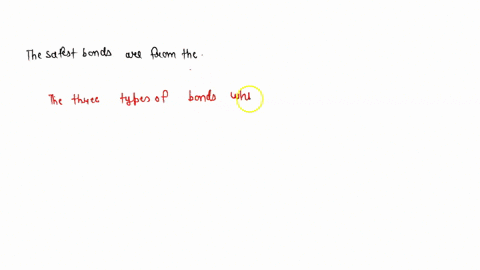 The safest bonds are from the.
The three types of bonds whi